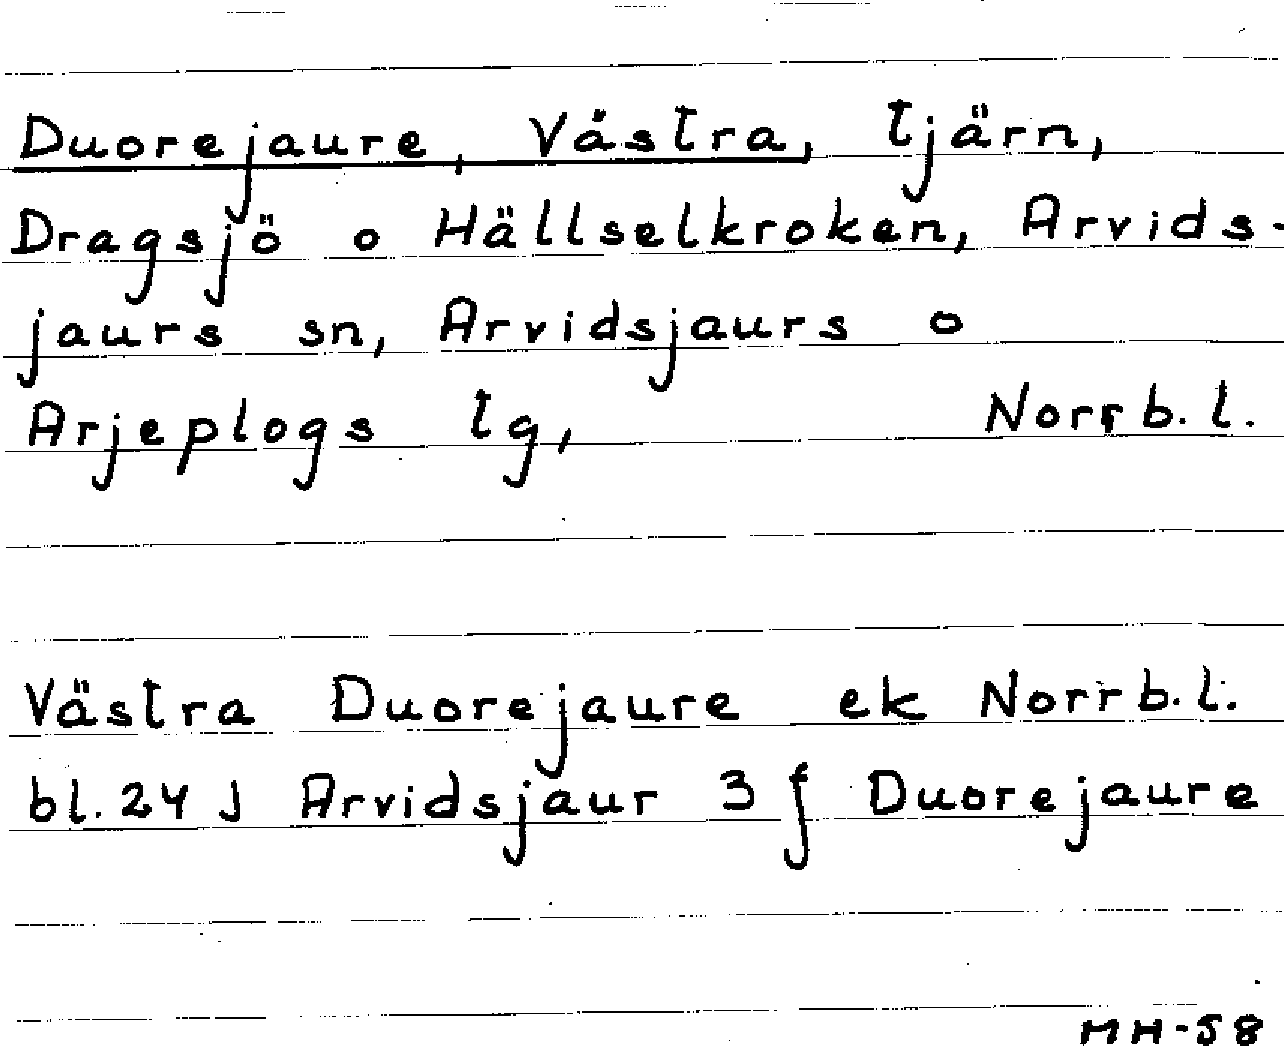 Duorejaure, Västra, tjärn,
Dragsjö o Hällselkroken, Arvids-
jaurs sn, Arvidsjaurs o
Arjeplogs lg, Norrb.l.
Västra Duorejaure ek Norrb.l.
bl.24 J Arvidsjaur 3 f Duorejaure
MH-58